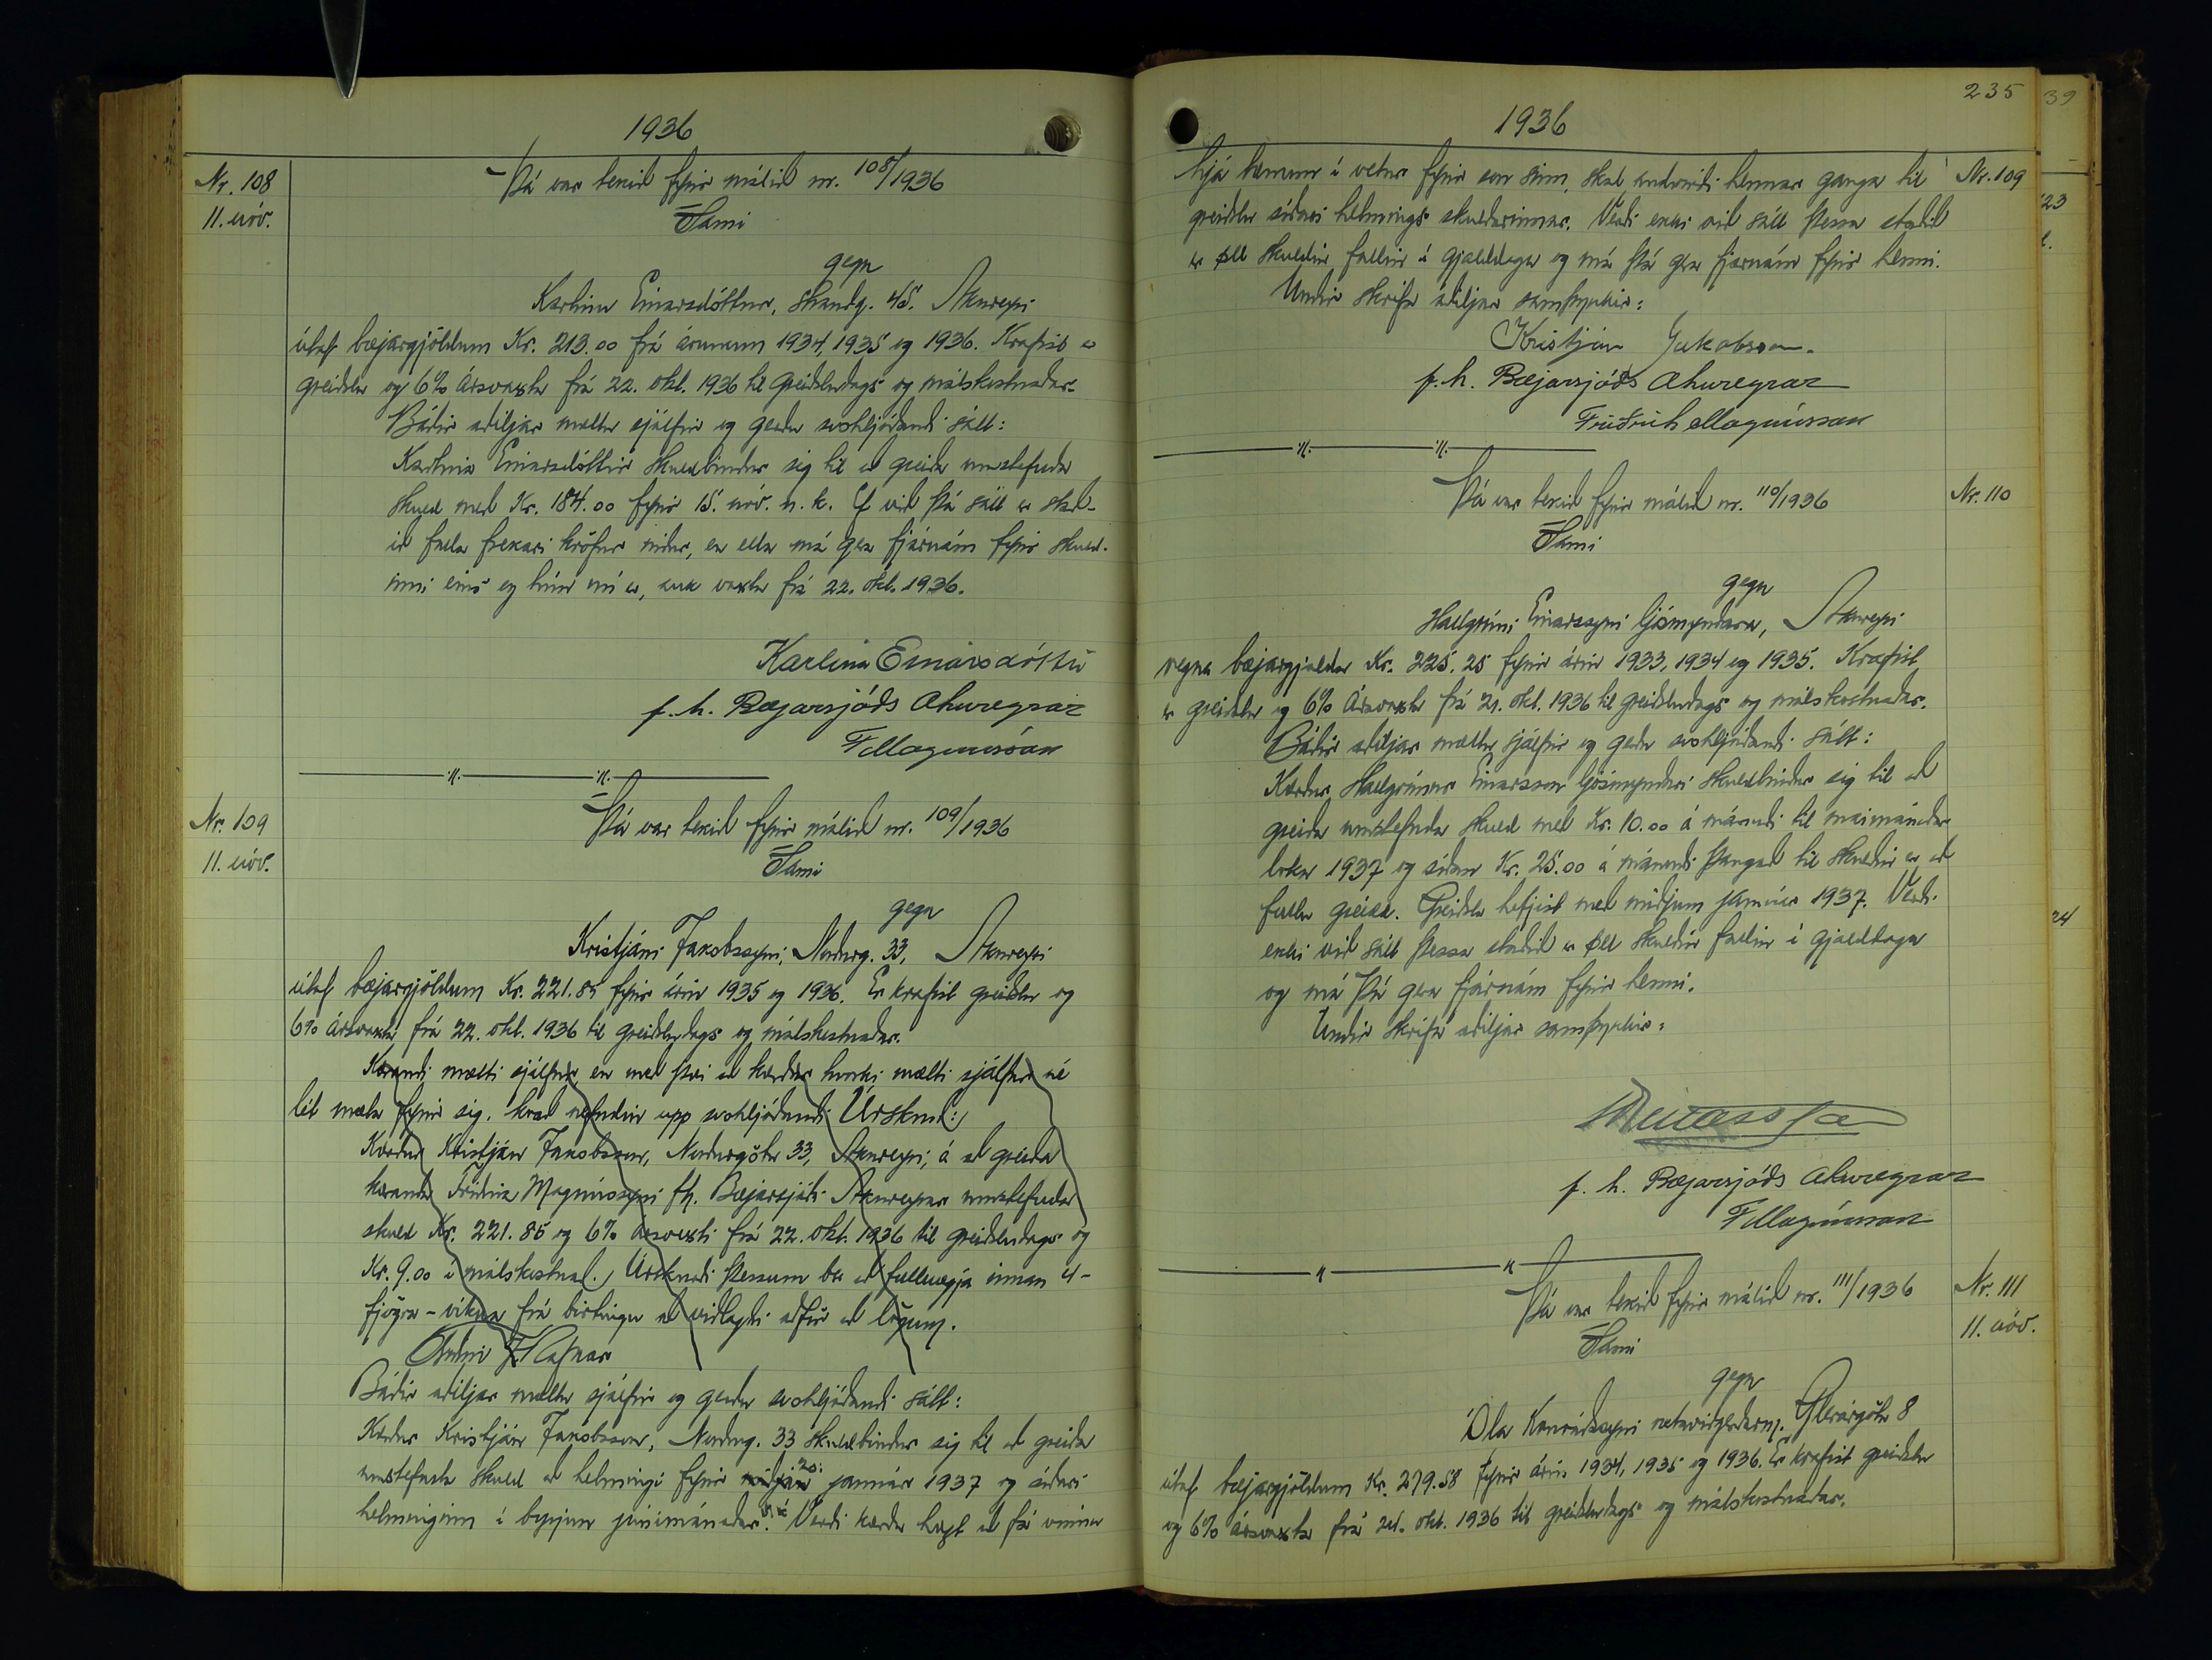 1936
Nr. 108
11. nóv.
Þá var tekið fyrir málið nr. 108/1936
Sami
gegn
Karlinu Einarsdóttur, Strandg. 45. Akureyri
útaf bæjargjöldum Kr. 213.00 frá árunum 1934, 1935 og 1936. Krafist er
greiðslu og 6% ársvaxta frá 22. okt. 1936 til greiðsludags og málskostnaðar.
Báðir aðiljar mættu sjálfir og gerðu svohljóðandi sátt:
Karlina Einarsdóttir skuldbindur sig til að greiða umstefnda
skuld með Kr. 184.00 fyrir 15. nóv. n.k. Ef við þá sátt er stað-
ið falla frekari kröfur niður, en ella má gera fjárnám fyrir skuld-
inni eins og hún nú er, auk vaxta frá 22. okt. 1936.
Karlína Einarsdóttir
f.h. Bæjarsjóðs Akureyrar
FMagnússon
Nr. 109
11. nóv.
Þá var tekið fyrir málið nr. 109/1936
Sami
gegn
Kristjáni Jakobssyni, Norðurg. 33, Akureyri
útaf bæjargjöldum Kr. 221.85 fyrir árin 1935 og 1936. Er krafist greiðslu og
6% ársvaxta frá 22. okt. 1936 til greiðsludags og málskostnaðar.
Kærandi mætti sjálfur, en með því að kærður hvorki mætti sjálfur né
lét mæta fyrir sig, kvað nefndin upp svohljóðandi Úrskurð:
Kærður Kristján Jakobsson, Norðurgötu 33, Akureyri, á að greiða
kæranda Friðrik Magnússyni fh. Bæjarsjóðs Akureyrar umstefnda
skuld Kr. 221.85 og 6% ársvexti frá 22. okt. 1936 til greiðsludags og
Kr. 9.00 í málskostnað. Úrskurði þessum ber að fullnægja innan 4-
fjögra - vikna frá birtingu að viðlagðri aðför að lögum.
Báðir aðiljar mættu sjálfir og gerðu svohljóðandi sátt:
Kærður Kristján Jakobsson, Norðurg. 33 skuldbindur sig til að greiða
umstefnda skuld að helmingi fyrir miðjan 20. janúar 1937 og síðari
helminginn í byrjun júnímánaðar s.á. Verði kærða hægt að fá vinnu
235
1936
Nr. 109
hjá bænum í vetur fyrir son sinn, skal andvirði hennar ganga til
greiðslu síðari helmings skuldarinnar. Verði ekki við sátt þessa staðið
er öll skuldin fallin í gjalddaga og má þá gera fjárnám fyrir henni.
Undir skrifa aðiljar samþykkir:
Kristján Jakobsson.
f.h. Bæjarsjóðs Akureyrar
Friðrik Magnússon
Nr. 110
Þá var tekið fyrir málið nr. 110/1936
Sami
gegn
Hallgrími Einarssyni ljósmyndara, Akureyri
vegna bæjargjalda Kr. 225.25 fyrir árin 1933, 1934 og 1935. Krafist
er greiðslu og 6% ársvaxta frá 21. okt. 1936 til greiðsludags og málskostnaðar.
Báðir aðiljar mættu sjálfir og gerðu svohljóðandi sátt:
Kærður Hallgrímur Einarsson ljósmyndari skuldbindur sig til að
greiða umstefnda skuld með Kr. 10.00 á mánuði til maímánaðar
loka 1937 og síðan Kr. 25.00 á mánuði þangað til skuldin er að
fullu greidd. Greiðsla hefjist með miðjum janúar 1937. Verði
ekki við sátt þessa staðið er öll skuldin fallin í gjalddaga
og má þá gera fjárnám fyrir henni.
Undir skrifa aðiljar samþykkir:
f.h. Bæjarsjóðs Akureyrar
FMagnússon
Nr. 111
11. nóv.
Þá var tekið fyrir málið nr. 111/1936
Sami
gegn
Óla Konráðssyni netaviðgerðarm. Glerárgötu 8
útaf bæjargjöldum Kr. 279.58 fyrir árin 1934, 1935 og 1936. Er krafist greiðslu
og 6% ársvaxta frá 21. okt. 1936 til greiðsludags og málskostnaðar.
39
23
24